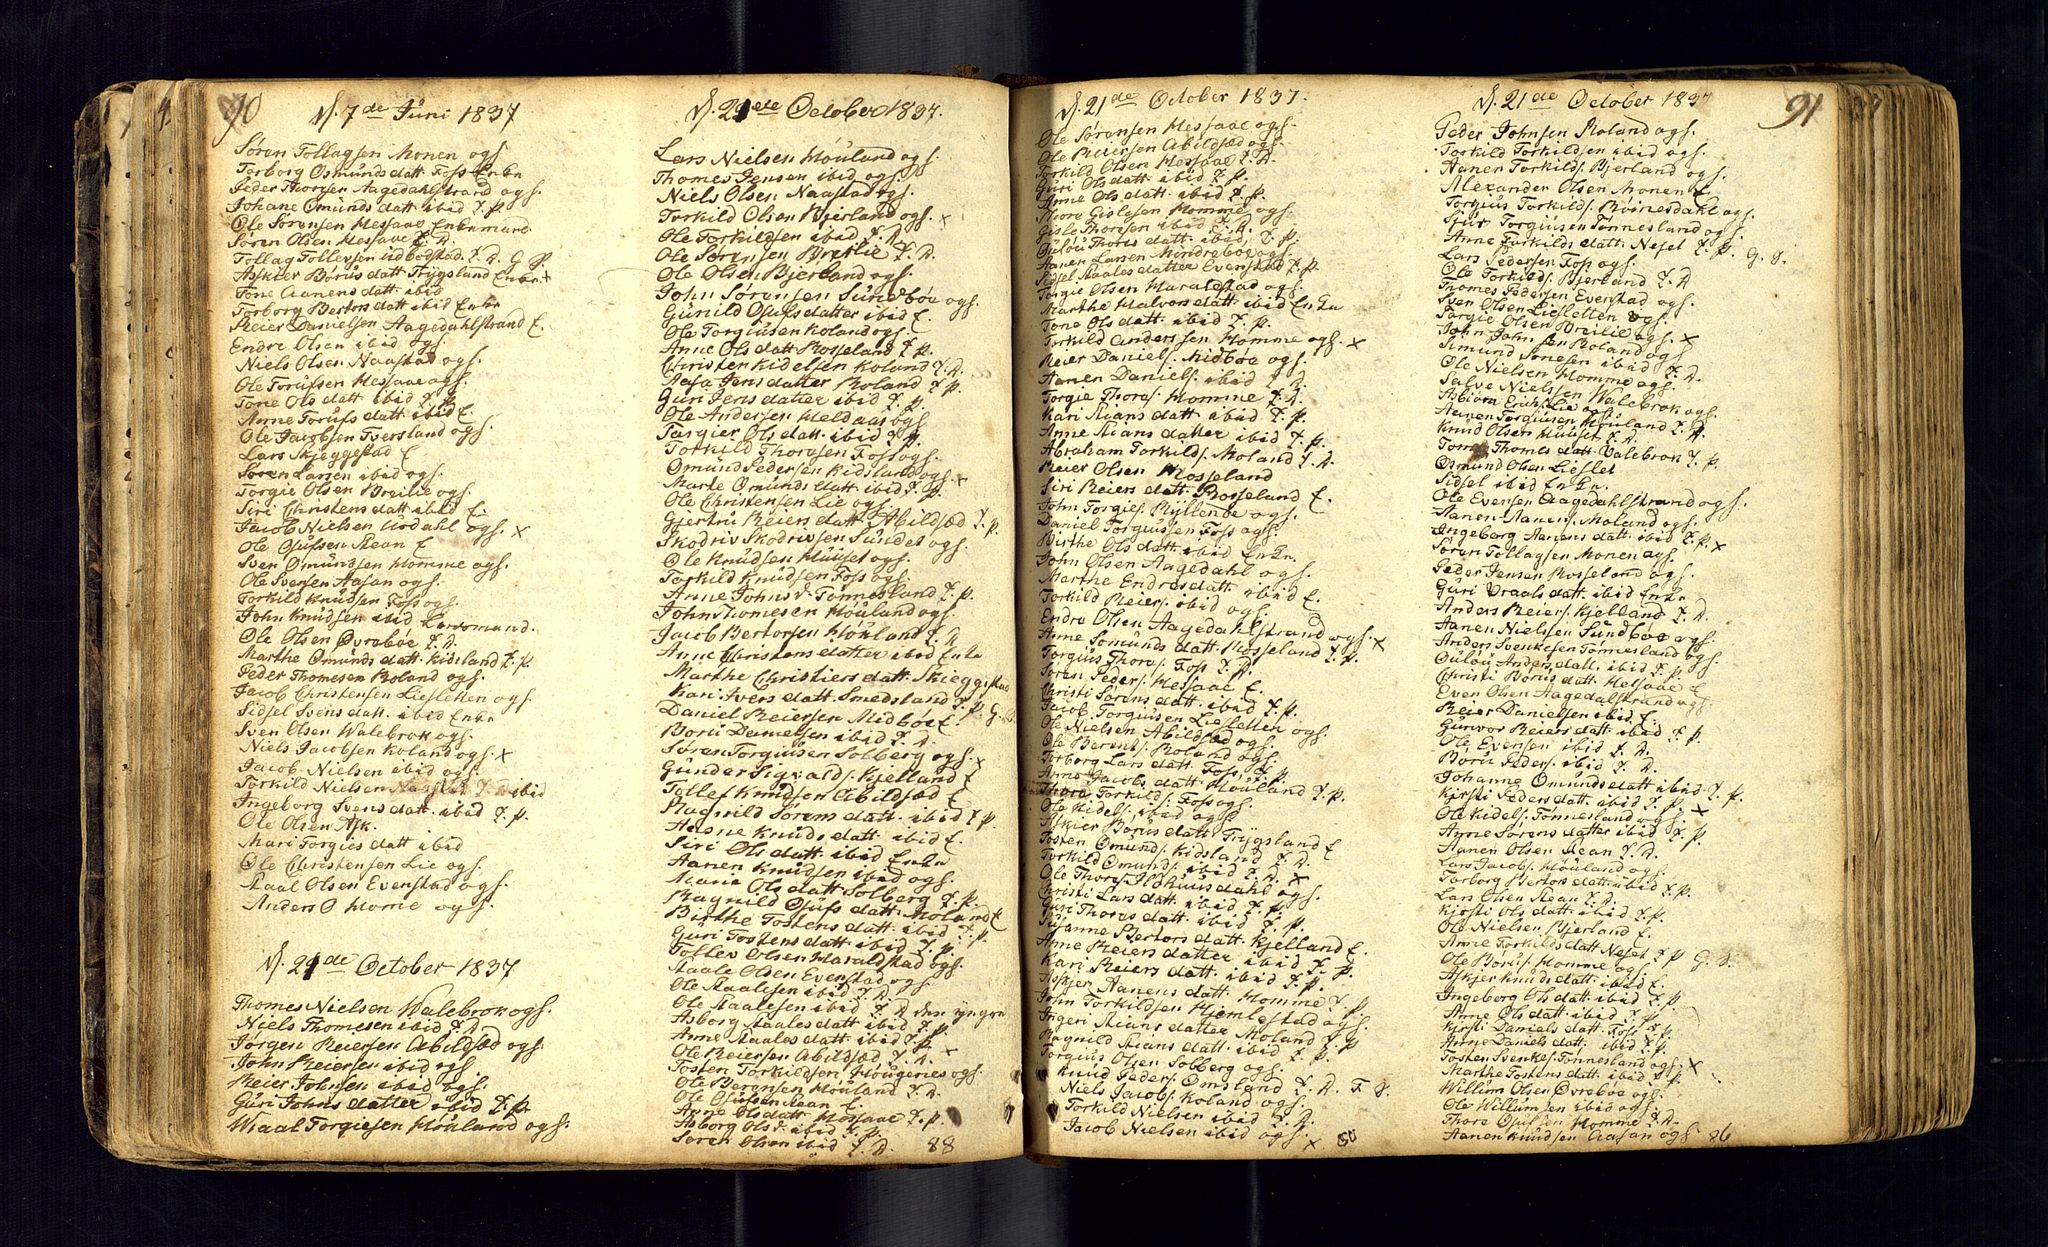 90
d. 7de Juni 1837
Søren Tollagsen Monen ogs.
Torborg Osmunds datt Foss Enkn
Peder Thorsen Aagedahlstrand ogs.
Johane Omunds datt ibid T. p.
Ole Sørensen Messaae Enkemand
Søren Olsen Messaae T. D.
Tollag Tollevsen Udbodstad. T. D. G. P.
Askier Børus datt Trygsland Enkn x
Tone Aanens datt ibid
Torborg Bertors datt ibid Enkn
Reier Danielsen Aagedahlstrand E.
Endre Olsen ibid ogs.
Niels Olsen Naastad ogs.
Ole Torufsen Messaae ogs.
Tone Ols datt ibid T. p.
Anne Torufs datt ibid E.
Ole Jacobsen Tversland ogs.
Lars Skjeggestad E
Søren Larsen ibid ogs.
Torgie Olsen Breilie ogs.
Siri Christens datt ibid E.
Jacob Nielsen Urdahl ogs. x
Ole Ojufsen Aean E
Sven Omundsen Homme ogs.
Ole Svensen Aasan ogs.
Torkild Knudsen Foss ogs.
John Knudsen ibid
Ole Olsen Øvreboe T. D.
Marthe Omunds datt. Kidsland T. p.
Peder Thomesen Roland ogs.
Jacob Christensen Liesletten ogs.
Sidsel Svens datt. ibid Enkn
Sven Olsen Walebrok ogs.
Niels Jacobsen Koland ogs. x
Jacob Nielsen ibid ogs.
Torkild Nielsen T. D. ibid
Ingeborg Svens datt. ibid T. p.
Ole Olsen Ask.
Mari Torgies datt ibid
Ole Christensen Lie ogs.
Staal Olsen Evenstad ogs.
Anders O Home ogs.
d. 21de October 1837
Thomes Nielsen Walebrok ogs.
Niels Thomesen ibid T. D
Jørgen Reiersen Abildsæd ogs.
John Reiersen ibid ogs.
Reier Johnsen ibid ogs.
Guri Johns datter ibid T. p.
Wraal Torgiesen Houland ogs.
d. 21de October 1837.
Lars Nielsen Houland ogs.
Thomes Jensen ibid ogs.
Niels Olsen Naastad ogs.
Torkild Olsen Bjerland ogs. x
Ole Torkildsen ibid T. D.
Ole Sørensen Breilie T. D.
Ole Olsen Bjerland ogs.
John Sørensen Sundboe ogs.
Gunild Ojufs datter ibid E
Ole Torgiusen Koland ogs.
Anne Ols datt Rosseland T. p.
Christen Kidelsen Koland T. D.
Aasa Jens datter Roland T. p.
Guri Jens datter ibid T. p.
Ole Andersen Meldaas ogs
Targier Ols datt ibid T. p.
Torkild Thorsen Foss ogs.
Omund Pedersen Kidsland ogs.
Marte Omunds datt ibid T. p.
Ole Christensen Lie ogs.
Gjertru Reiers datt. Abildsæd T. p.
Skodriv Skodrivsen Sundet ogs.
Ole Knudsen Huuset ogs.
Torkild Knudsen Foss ogs.
Anne Johns d. Tønnesland T. p.
John Thomesen Houland ogs.
Jacob Bertorsen Houland T. D
Anne Christens datter ibid Enkn
Marthe Christiers datt Skieggestad
Kari Ivers datt Smedsland T. p. G. S.
Daniel Reiersen Midboe E
Boru Danielsen ibid T. D.
Søren Torgiusen Solberg ogs. x
Gunder Sigvalds. Kjelland E
Tollef Knudsen Abildsæd E
Ragnild Sørens datt. ibid T. p.
Aasne Knuds datt. ibid E.
Siri Ols datt. ibid Enkn
Aanen Knudsen ibid ogs.
Marie Ols datt Solberg T. p.
Ragnild Ojufs datt. Moland E
Birthe Tostens datt. ibid T. p.
Guri Tostens datt. ibid T. p.
Tollev Olsen Haraldstad ogs.
Staale Olsen Evenstad ogs
Ole Staalesen ibid T. D.
Ole Staalesen ibid T. D den yngre
Asborg Staales datt ibid T. p.
Anne Staales datt ibid T. p.
Ole Reiersen Abildsæd T. D. x
Tosten Torkildsen Hougenies ogs.
Ole Berensen Houland T. D.
Ole Ojufsen Aean E
Anne Ols datt Messaae T. p.
Asborg Ols d. ibid T. p.
Søren Olsen ibid T. D. 88
d. 21de October 1837.
Ole Sørensen Messaae ogs.
Ole Reiersen Abildsæd ogs.
Torkild Olsen Messaae T. D.
Guri Ols datt ibid T. p.
Anne Ols datt ibid T. p.
Thore Gislesen Homme ogs.
Gisle Thoresen ibid T. D.
Gulou Thores datt. ibid. T. p.
Aanen Larsen Mindreboe ogs.
Sidsel Staales datter Evenstad T. p.
Torgie Olsen Haraldstad ogs.
Marthe Halvors datt ibid Enkn
Tone Ols datt ibid T. p.
Torkild Anderssen Homme ogs. x
Reier Daniels. Midboe ogs.
Aanen Daniels. ibid T. D.
Torgie Thors. Homme T. D.
Kari Aians datt ibid T. p.
Anne Aians datter ibid T. p.
Abraham Torkilds. Moland T. D.
Reier Olsen Rosseland
Siri Reiers datt Rosseland E.
John Torgies. Ryllenoe ogs.
Daniel Torgiussen Foss ogs.
Birthe Ols datt ibid Enkn.
John Olsen Aagedahl ogs.
Marthe Endres datt ibid E.
Torkild Reiers. ibid ogs.
Endre Olsen Aagedahlstrand ogs. x
Anne Somunds datt Rosseland T. p.
Torgius Thors. Foss T. D.
Søren Peders. Messaae E.
Christi Sørens datt. ibid T. p.
Jacob Torgiusen Liesletten ogs.
Ole Nielsen Abildsæd ogs.
Ole Berents. Roland ogs.
Torborg Lars datt. Foss T. p.
Anne Jacobs datt Houland T. p.
Thore Torkilds. Foss ogs.
Ole Kidels. ibid ogs
Askier Børus datt Trygsland E
Tosten Omunds. Kidsland T. D.
Torkild Omunds. ibid T. D.
Ole Thors. Ildhuusdahl ogs. x
Christi Lars datt ibid T. p.
Guri Thores datt ibid T. p.
Susanne Bertors datt Kjelland E.
Anne Reiers datter ibid T. p.
Kari Reiers datt. ibid T. p.
Askjer Aanens datt. Homme T. p
John Torkildsen Hjemlestad ogs.
Ingeri Aians datter Moland T. p
Ragnild Aians datt. ibid T. p.
Torgius Olsen Solberg ogs.
Knud Peders. Omsland T. D. F. S.
Niels Jacobs. Koland ogs.
Torkild Nielsen ibid T. D.
Jacob Nielsen ibid ogs. x
d. 21de October 1837
91
Peder Johnsen Roland ogs.
Torkild Torkildsen ibid ogs.
Aanen Torkilds. Bjerland ogs.
Alexander Olsen Monen E
Torgius Torkilds. Røinesdahl ogs.
Siur Torgiusen Tønnesland ogs.
Anne Torkilds datt. Neset T. p. G. S.
Lars Pedersen Foss ogs.
Ole Torkilds. Bjerland T. D.
Thomes Pedersen Everstad ogs.
Sven Olsen Liesletten ogs.
Torgie Olsen Breilie ogs. x
John Johnsen Roland ogs
Simund Sonesen ibid T. D.
Ole Nielsen Homme ogs.
Salve Nielsen Walebrok ogs.
Asbiørn Erichs. Lie ogs.
Aanen Torgiusen Houland ogs.
Knud Olsen Huuset T. D.
Tone Thomes datt Valebrok T. p.
Osmund Olsen Lieslet
Sidsel ibid Enkn.
Ole Evensen Aagedahlstrand ogs.
Aanen Aanens. Moland ogs.
Ingeborg Aanens datt. ibid T. p. x
Søren Tollagsen Monen ogs.
Peder Jensen Rosseland ogs.
Guri Vraals datt. ibid Enkn
Anders Reiers. Kjelland T. D.
Aanen Nielsen Sundboe ogs.
Anders Svenkesen Tønnesland ogs.
Gulou Anders datt. ibid T. p.
Christi Børus datt. Messaae E
Even Olsen Aagedalstrand ogs.
Reier Danielsen ibid E.
Gunvor Reiers datt ibid T. p.
Ole Evensen ibid T. D.
Børu Peders. ibid T. D.
Johanne Omunds datt ibid T. p.
Kirsti Peders datt. ibid T. p. x
Ole Kidels. Tønnesland ogs.
Anne Sørens datter ibid T. p.
Aanen Olsen Aean T. D.
Lars Jacobs. Houland ogs.
Torborg Bertors datt ibid T. p.
Lars Olsen Aean T. D.
Kjersti Ols datt. ibid T. p.
Ole Nielsen Bjerland E.
Anne Torkilds datt Neset T. p. G. S.
Ole Børus. Homme ogs.
Askjer Knuds datt. ibid E.
Ingeborg Ols datt. ibid T. p.
Anne Ols datt ibid T. p.
Kirsti Daniels datt. Foss T. p.
Anne Daniels datt. ibid T. p.
Tosten Svenkes. Tønnesland ogs. x
Marthe Tostens datt. ibid T. p.
Willum Olsen Øvreboe ogs
Ole Willumsen ibid ogs.
Thore Ojufsen Homme T. D.
Aanen Knudsen Aasan ogs. 86